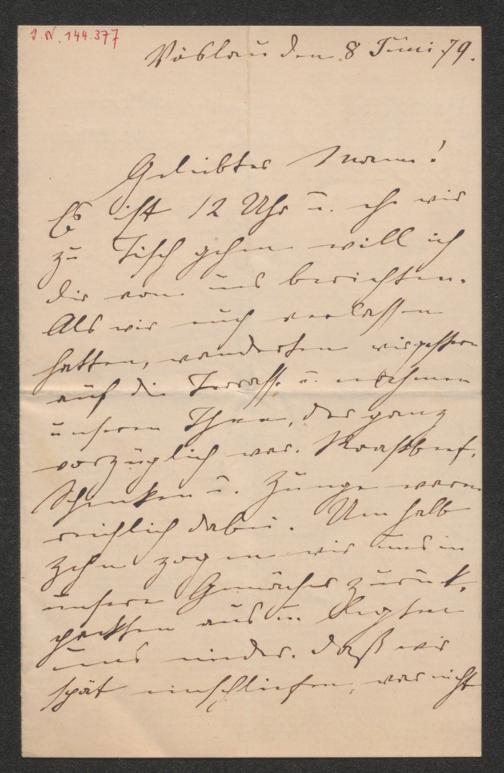 I. N. 144.377
Vöslau den 8 Juni 79.
Geliebter Mann!
Es ist 12 Uhr u. ehe wir
zu Tisch gehen will ich
dir von uns berichten.
Als wir euch verlassen
hatten, wanderten wir gestern
auf die Terrasse u. nahmen
unseren Thee, der ganz
vorzüglich war. Roastbeef,
Schinken u. Zunge waren
reichlich dabei. Um halb
zehn zogen wir uns in
unsere Gemächer zurück,
packten aus u. legten
uns nieder. Daß wir
spät einschliefen, war nicht